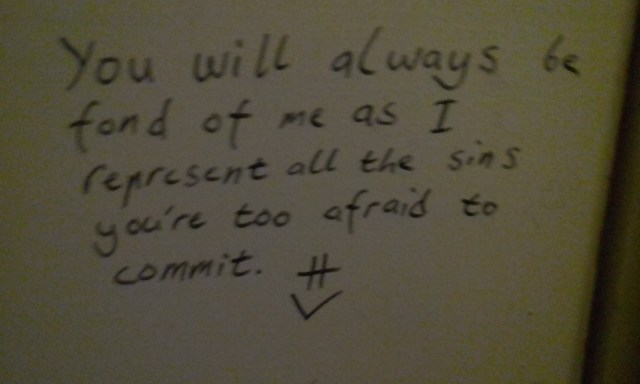 You will always be
fond of me as I
represent all the sins
you're too afraid to
commit. #